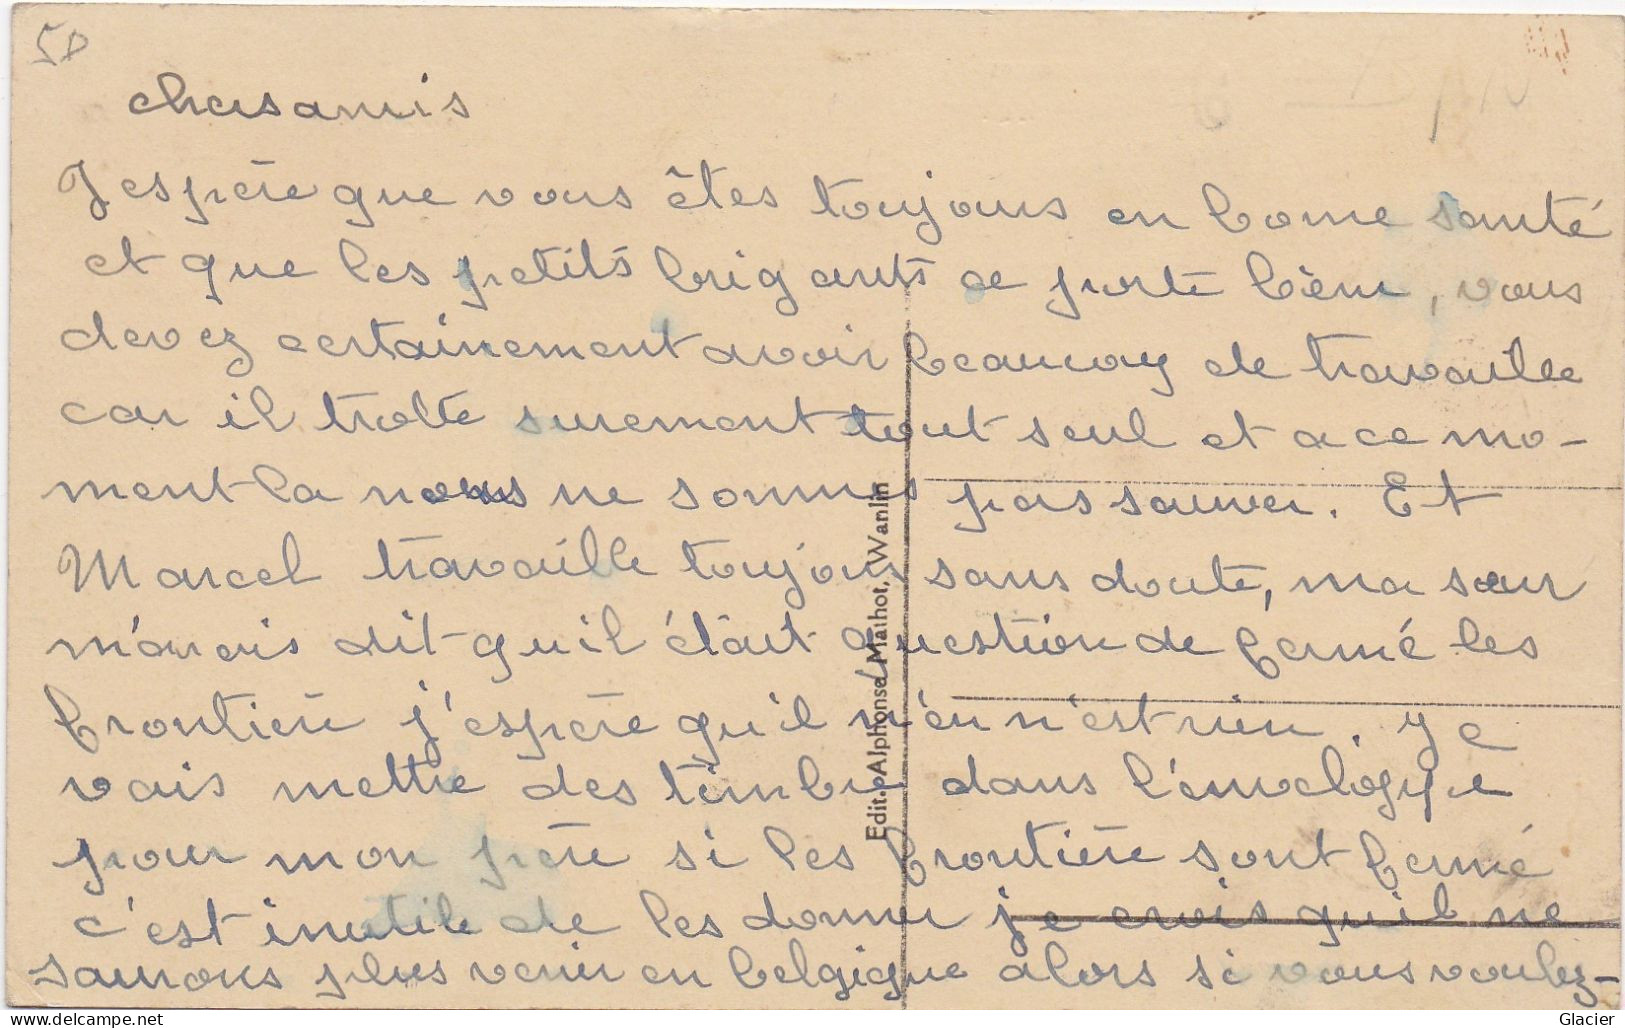 50
chers amis
J'espère que vous êtes toujours en bonne santé
et que les petits brigants ce porte bien, vous
devez certainement avoir beaucoup de travaille
car il trotte surement tout seul et a ce mo-
ment-la nous ne sommes pas sauver. Et
Marcel travaille toujours sans doute, ma sœur
m'avais dit qu'il était question de fermé les
frontière j'espère qu'il n'en n'est rien. Je
vais mettre des timbre dans l'enveloppe
pour mon père si les frontière sont fermé
c'est inutile de les donner je crois qu'il ne
saurons plus venir en belgique alors si vous voulez-
Edit. Alphonse Mathot, Wanlin
www.delcampe.net
Glacier